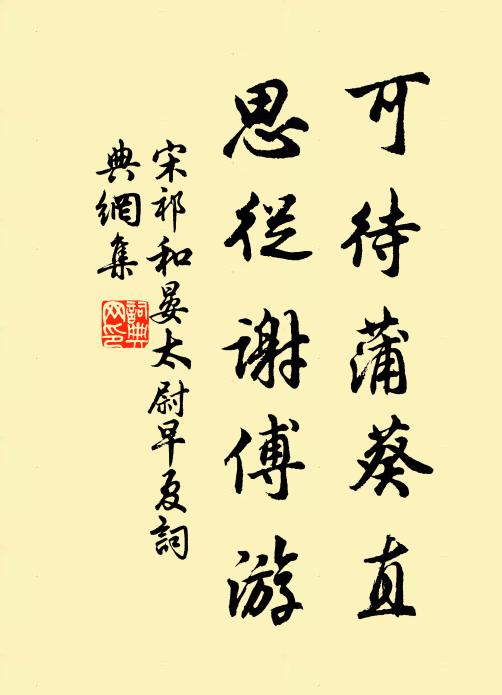 可待蒲葵直
思從謝傅游
宋祁和晏太尉早夏詞
典網集
詞典網印